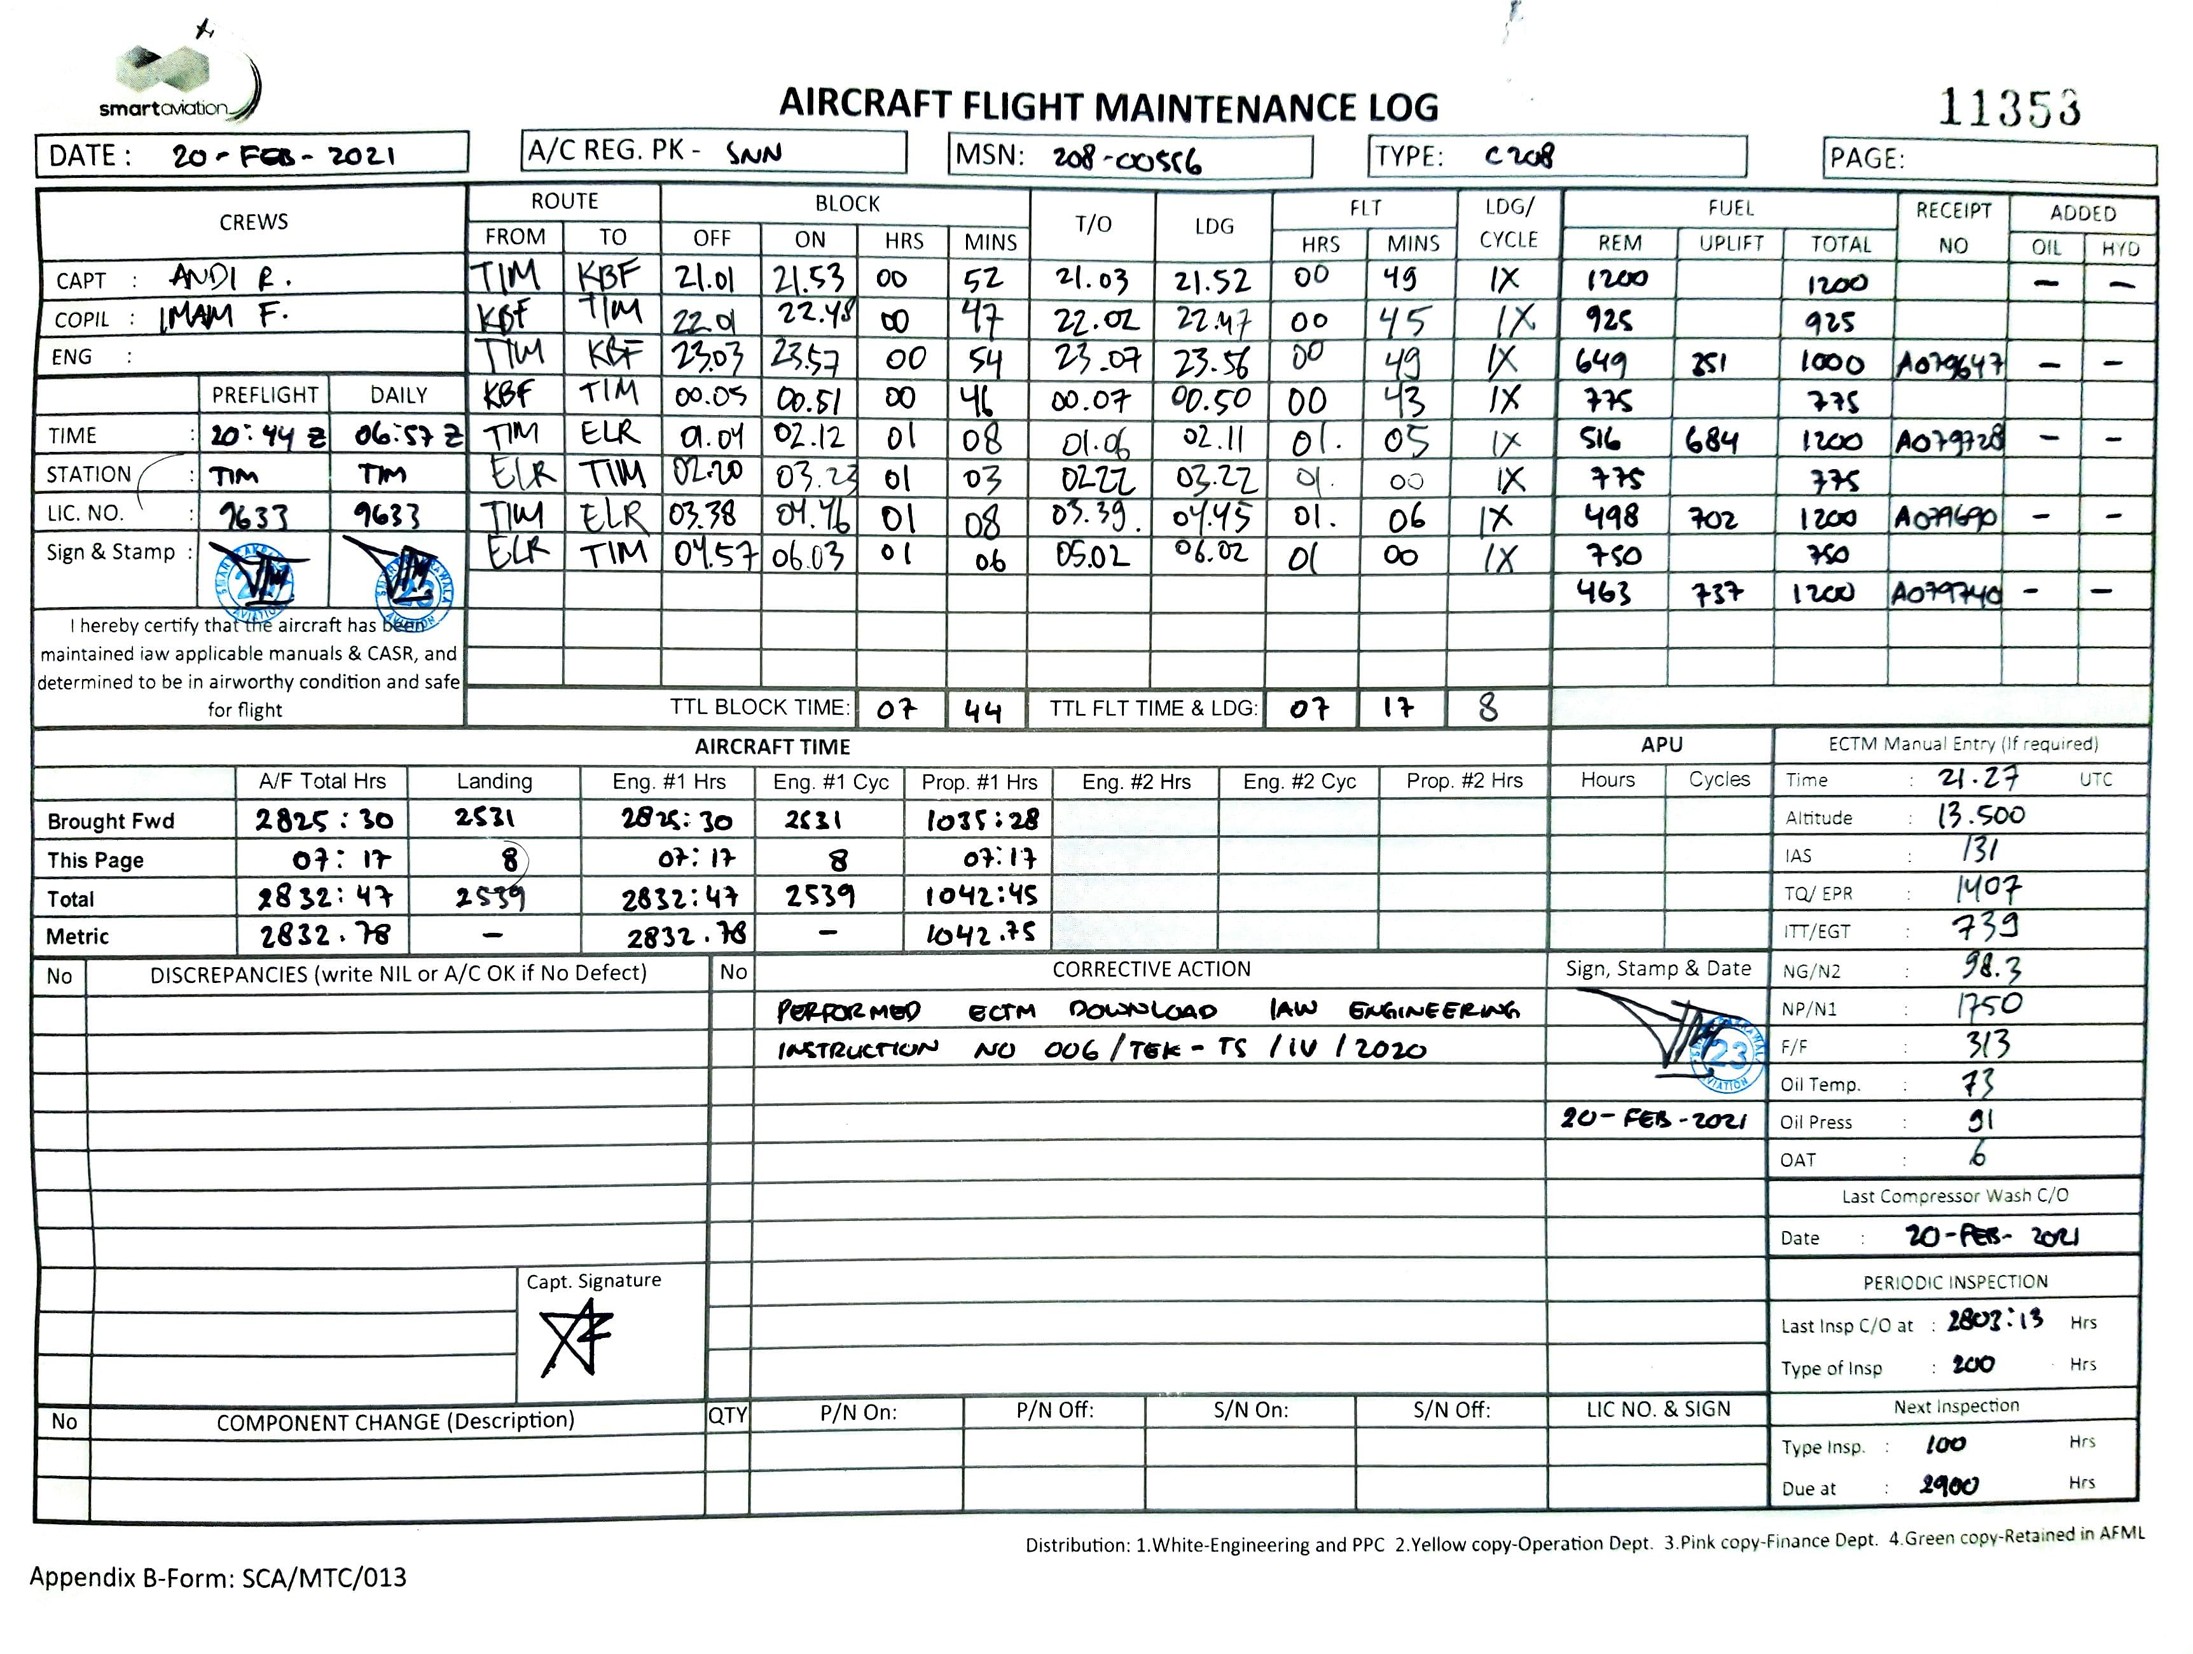 smartaviation
AIRCRAFT FLIGHT MAINTENANCE LOG
11353
DATE : 20 - FEB - 2021
A/C REG. PK - SNN
MSN: 208-00556
TYPE: C208
PAGE:
CREWS ROUTE BLOCK T/O LDG FLT LDG/ CYCLE FUEL RECEIPT NO ADDED
FROM TO OFF ON HRS MINS HRS MINS REM UPLIFT TOTAL OIL HYD
CAPT : ANDI R. TIM KBF 21.01 21.53 00 52 21.03 21.52 00 49 1X 1200 1200 — —
COPIL : IMAM F. KBF TIM 22.01 22.48 00 47 22.02 22.47 00 45 1X 925 925
ENG : TIM KBF 23.03 23.57 00 54 23.07 23.56 00 49 1X 649 351 1000 A079647 — —
PREFLIGHT DAILY KBF TIM 00.05 00.51 00 46 00.07 00.50 00 43 1X 775 775
TIME : 20:44 Z 06:57 Z TIM ELR 01.04 02.12 01 08 01.06 02.11 01. 05 1X 516 684 1200 A079728 — —
STATION : TIM TIM ELR TIM 02.20 03.23 01 03 0222 03.22 01. 00 1X 775 775
LIC. NO. : 9633 9633 TIM ELR 03.38 04.46 01 08 03.39. 04.45 01. 06 1X 498 702 1200 A079690 — —
Sign & Stamp : ELR TIM 04.57 06.03 01 06 05.02 06.02 01 00 1X 750 750
463 737 1200 A079740 — —
I hereby certify that the aircraft has been
maintained iaw applicable manuals & CASR, and
determined to be in airworthy condition and safe
for flight
TTL BLOCK TIME: 07 44 TTL FLT TIME & LDG: 07 17 8
AIRCRAFT TIME APU
A/F Total Hrs Landing Eng. #1 Hrs Eng. #1 Cyc Prop. #1 Hrs Eng. #2 Hrs Eng. #2 Cyc Prop. #2 Hrs Hours Cycles
Brought Fwd 2825:30 2531 2825:30 2531 1035:28
This Page 07:17 8 07:17 8 07:17
Total 2832:47 2539 2832:47 2539 1042:45
Metric 2832.78 — 2832.78 — 1042.75
ECTM Manual Entry (If required)
Time : 21.27 UTC
Altitude : 13.500
IAS : 131
TQ/ EPR : 1407
ITT/EGT : 739
NG/N2 : 98.3
NP/N1 : 1750
F/F : 313
Oil Temp. : 73
Oil Press : 91
OAT : 6
Last Compressor Wash C/O
Date : 20-FEB- 2021
PERIODIC INSPECTION
Last Insp C/O at : 2803:13 Hrs
Type of Insp : 200 Hrs
Next Inspection
Type Insp. : 100 Hrs
Due at : 2900 Hrs
No DISCREPANCIES (write NIL or A/C OK if No Defect) No CORRECTIVE ACTION Sign, Stamp & Date
PERFORMED ECTM DOWNLOAD IAW ENGINEERING
INSTRUCTION NO 006/TEK-TS/IV/2020
23
AVIATION
20-FEB-2021
Capt. Signature
No COMPONENT CHANGE (Description) QTY P/N On: P/N Off: S/N On: S/N Off: LIC NO. & SIGN
Distribution: 1.White-Engineering and PPC 2.Yellow copy-Operation Dept. 3.Pink copy-Finance Dept. 4.Green copy-Retained in AFML
Appendix B-Form: SCA/MTC/013